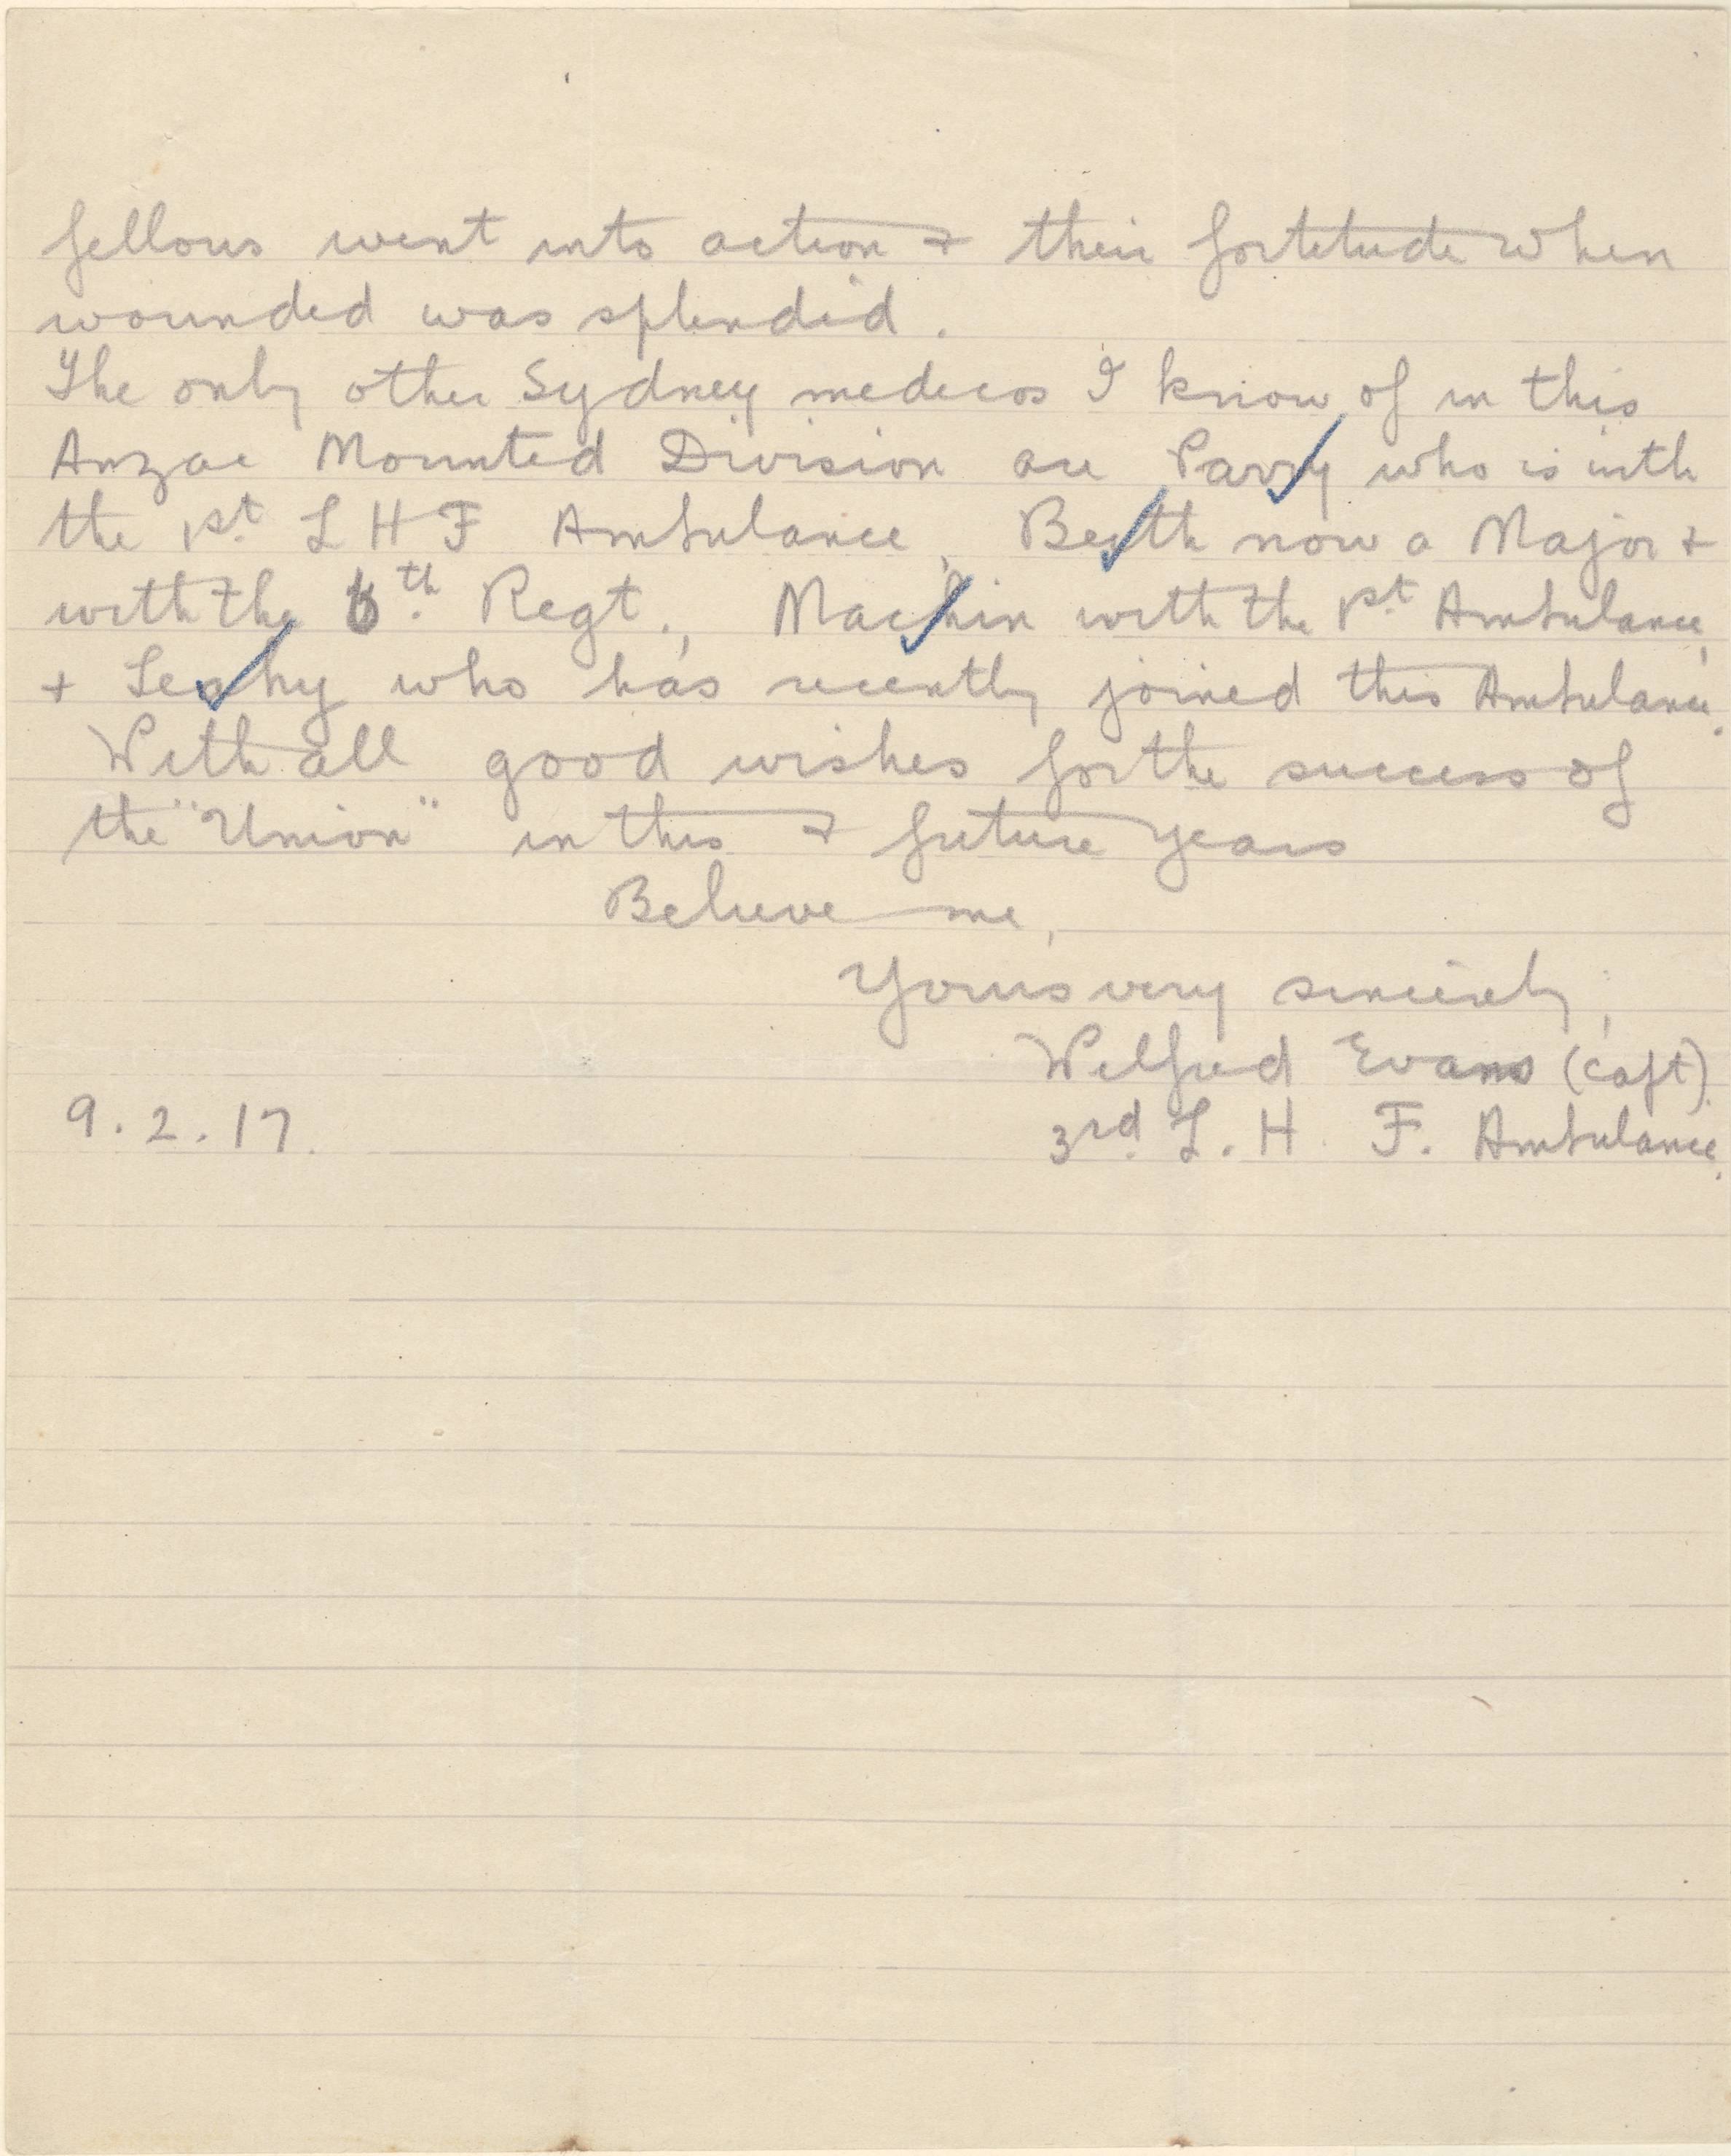 fellows went into action & their fortitude when
wounded was splendid.
The only other Sydney medicos I know of in this
Anzac Mounted Division are Parry who is with
the 1st. L H F Ambulance, Beith now a Major &
with the 6th. Regt., Machin with the 1st. Ambulance,
& Leahy who has recently joined this Ambulance.
With all good wishes for the success of
the "Union" in this & future years
Believe me,
Yours very sincerely,
Wilfred Evans (Capt).
9.2.17.
3rd. L. H. F. Ambulance.